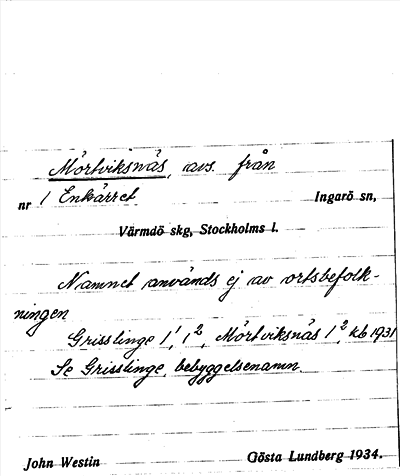 Mörtviksnäs, avs. från
nr 1 Enkärret Ingarö sn,
Värmdö skg, Stockholms l.
Namnet används ej av ortsbefolk-
ningen
Grisslinge 1¹, 1², Mörtviksnäs 1², kb 1931
Se Grisslinge, bebyggelsenamn.
John Westin Gösta Lundberg 1934.